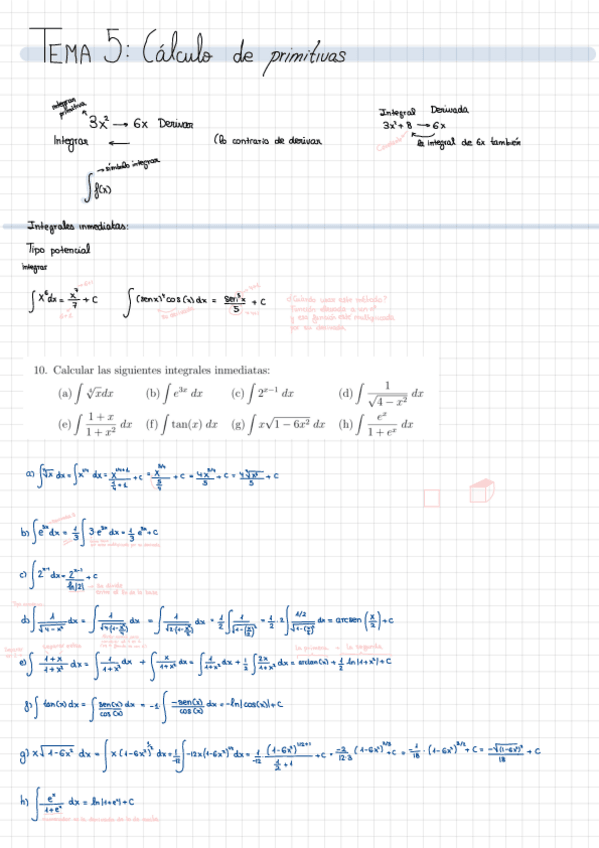 TEMA 5: Cálculo de primitivas
integrar
primitiva
3x² → 6x Derivar
Integrar ←
(lo contrario de derivar
Integral Derivada
3x² + 8 → 6x
la integral de 6x también
→ símbolo integrar
∫f(x)
Integrales inmediatas:
Tipo potencial
integrar
∫x⁶dx = x⁷/7 + C
∫(senx)⁴cos(x)dx = sen⁵x/5 + C
¿Cuándo usar este método?
10. Calcular las siguientes integrales inmediatas:
(a) ∫ ⁴√x dx (b) ∫ e³ˣ dx (c) ∫ 2ˣ⁻¹ dx (d) ∫ 1/√(4 − x²) dx
(e) ∫ (1 + x)/(1 + x²) dx (f) ∫ tan(x) dx (g) ∫ x√(1 − 6x²) dx (h) ∫ eˣ/(1 + eˣ) dx
a) ∫⁴√x dx = ∫x^(1/4) dx = x^(1/4+1)/(1/4+1) + C = x^(5/4)/(5/4) + C = 4x^(5/4)/5 + C = 4⁴√x⁵/5 + C
b) ∫e³ˣ dx = 1/3 ∫3e³ˣ dx = 1/3 e³ˣ + C
c) ∫2ˣ⁻¹ dx = 2ˣ⁻¹/ln|2| + C
d) ∫1/√(4−x²) dx = ∫1/√(4(1−x²/4)) dx = ∫1/√(2(1−(x/2)²)) dx = 1/2 ∫1/√(1−(x/2)²) = 1/2 · 2∫(1/2)/√(1−(x/2)²) dx = arcsen(x/2) + C
e) ∫(1+x)/(1+x²) dx = ∫1/(1+x²) dx + ∫x/(1+x²) dx = ∫1/(1+x²) dx + 1/2 ∫2x/(1+x²) dx = arctan(x) + 1/2 ln|1+x²| + C
f) ∫tan(x) dx = ∫sen(x)/cos(x) dx = −1·∫−sen(x)/cos(x) dx = −ln|cos(x)| + C
g) x√(1−6x²) dx = ∫x(1−6x²)^(1/2) dx = 1/−12 ∫−12x(1−6x²)^(1/2) dx = 1/−12 (1−6x²)^(1/2+1)/(1/2+1) + C = −2/12·3 (1−6x²)^(3/2) + C = −1/18 · (1−6x²)^(3/2) + C = −√(1−6x²)³/18 + C
h) ∫eˣ/(1+eˣ) dx = ln|1+eˣ| + C